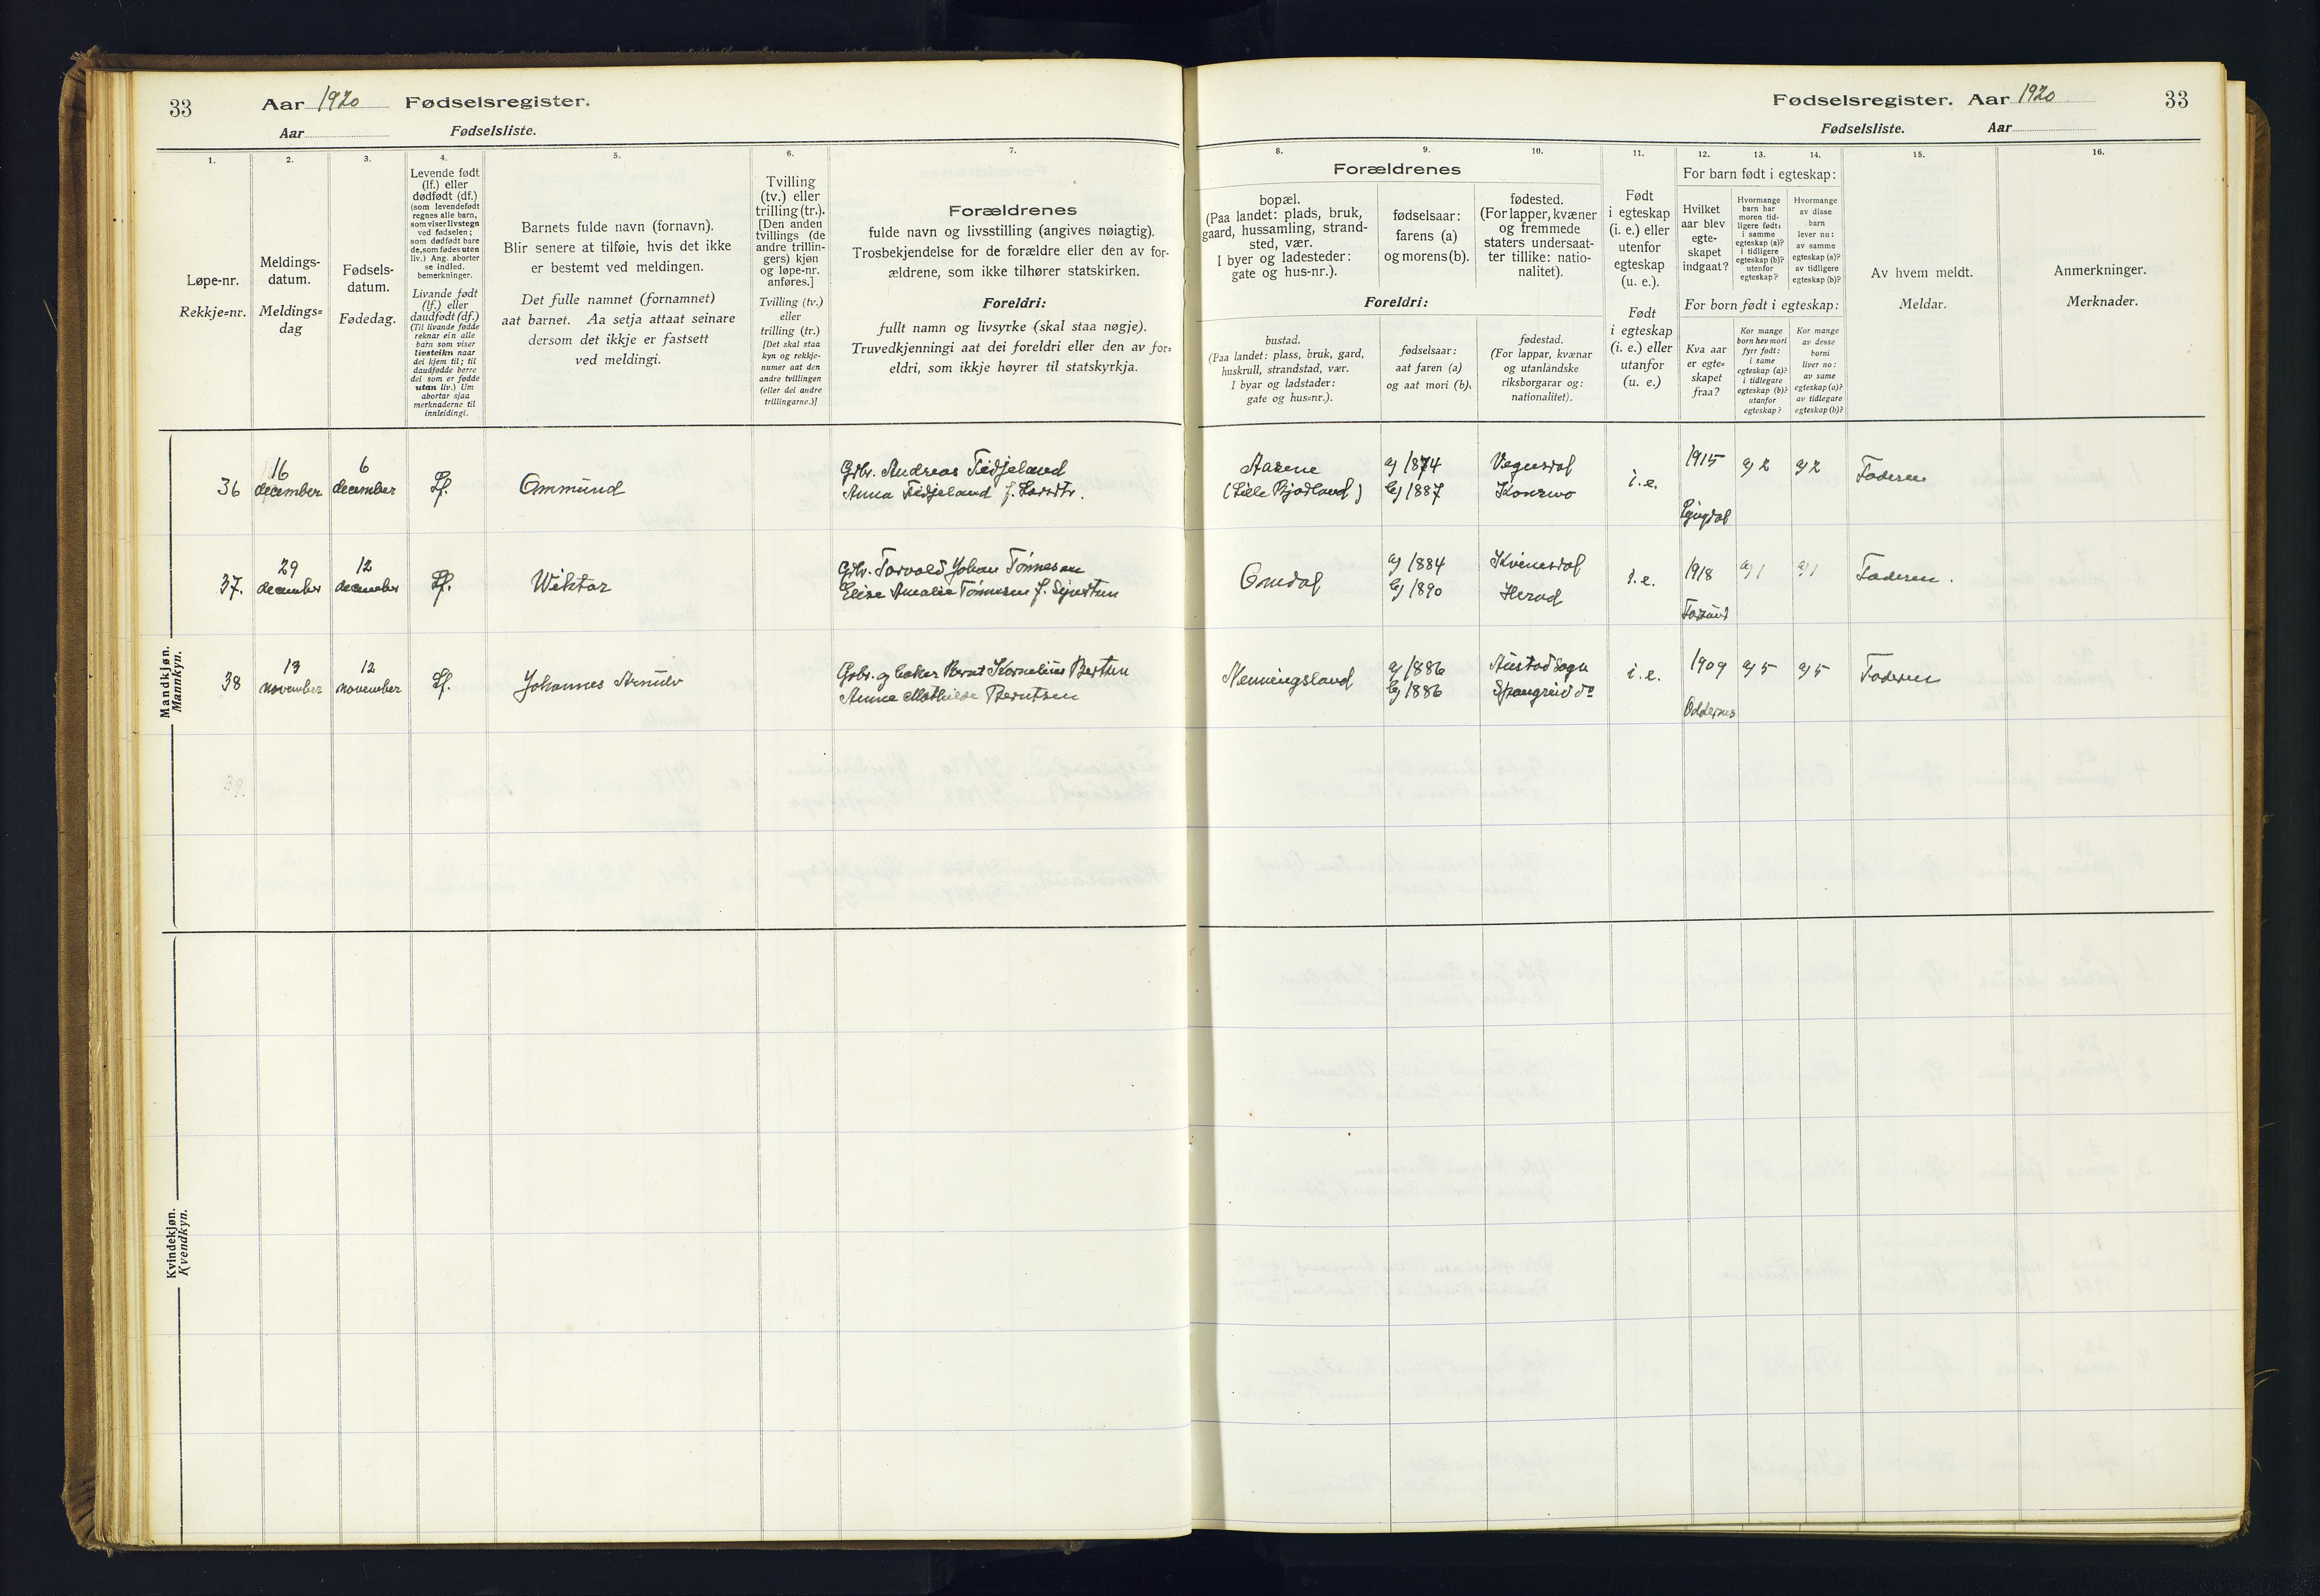 33
Aar 1920 Fødselsregister.
Aar Fødselsliste.
1.
2.
3.
4.
5.
6.
7.
Løpe-nr.
Rekkje=nr.
Meldings-
datum.
Meldings=
dag
Fødsels-
datum.
Fødedag.
Levende født
(lf.) eller
dødfødt (df.)
(som levendefødt
regnes alle barn,
som viser livstegn
ved fødselen;
som dødfødt bare
de, som fødes uten
liv.) Ang. aborter
se indled.
bemerkninger.
Livande født
(lf.) eller
daudfødt (df.)
(Til livande fødde
reknar ein alle
barn som viser
livsteikn naar
dei kjem til; til
daudfødde berre
dei som er fødde
utan liv.) Um
abortar sjaa
merknaderne til
innleidingi.
Barnets fulde navn (fornavn).
Blir senere at tilføie, hvis det ikke
er bestemt ved meldingen.
Det fulle namnet (fornamnet)
aat barnet. Aa setja attaat seinare
dersom det ikkje er fastsett
ved meldingi.
Tvilling
(tv.) eller
trilling (tr.).
[Den anden
tvillings (de
andre trillin-
gers) kjøn
og løpe-nr.
anføres.]
Tvilling (tv.)
eller
trilling (tr.)
[Det skal staa
kyn og rekkje-
numer aat den
andre tvillingen
(eller dei andre
trillingarne.)]
Forældrenes
fulde navn og livsstilling (angives nøiagtig).
Trosbekjendelse for de forældre eller den av for-
ældrene, som ikke tilhører statskirken.
Foreldri:
fullt namn og livsyrke (skal staa nøgje).
Truvedkjenningi aat dei foreldri eller den av for=
eldri, som ikkje høyrer til statskyrkja.
Mandkjøn.
Mannkyn.
36
16
december
6
december
Lf.
Ommund
Gbr. Andreas Tidjeland
Anna Tidjeland f.
37.
29
december
12
december
Lf.
Wiktor
Gbr. Torvald Johan Tønnesen
Elise Amalie Tønnesen f.
38
13
november
12
november
Lf.
Johannes Arnulv
Gbr. og baker Bernt Kornelius Berntsen
Anna Mathilde Berntsen
39.
Kvindekjøn.
Kvendkyn.
Fødselsregister. Aar 1920
33
Fødselsliste. Aar
8.
9.
10.
11.
12.
13.
14.
15.
16.
Forældrenes
bopæl.
(Paa landet: plads, bruk,
gaard, hussamling, strand-
sted, vær.
I byer og ladesteder:
gate og hus-nr.).
fødselsaar:
farens (a)
og morens (b).
fødested.
(For lapper, kvæner
og fremmede
staters undersaat-
ter tillike: natio-
nalitet).
Foreldri:
bustad.
(Paa landet: plass, bruk, gard,
huskrull, strandstad, vær.
I byar og ladstader:
gate og hus=nr.).
fødselsaar:
aat faren (a)
og aat mori (b).
fødestad.
(For lappar, kvænar
og utanlandske
riksborgarar og:
nationalitet).
Født
i egteskap
(i. e.) eller
utenfor
egteskap
(u. e.).
Født
i egteskap
(i. e.) eller
utanfor
(u. e.)
For barn født i egteskap:
Hvilket
aar blev
egte-
skapet
indgaat?
Hvormange
barn har
moren tid-
ligere født:
i samme
egteskap (a)?
i tidligere
egteskap (b)?
utenfor
egteskap?
Hvormange
av disse
barn
lever nu:
av samme
egteskap (a)?
av tidligere
egteskap (b)?
For born født i egteskap:
Kva aar
er egte-
skapet
fraa?
Kor mange
born hev mori
fyrr født:
i same
egteskap (a)?
i tidlegare
egteskap (b)?
utanfor
egteskap?
Kor mange
av desse
borni
liver no:
av same
egteskap (a)?
av tidlegare
egteskap (b)?
Av hvem meldt.
Meldar.
Anmerkninger.
Merknader.
Aasene
(Lille Bjodland)
a) 1874
b) 1887
Vegusdal
i. e.
1915
Lyngdal
a) 2
a) 2
Faderen
Omdal
a) 1884
b) 1890
Kvinesdal
Herad
i. e.
1918
Farsund
a) 1
a) 1
Faderen.
Nenningsland
a) 1886
b) 1886
Austad sogn
Spangreid do
i. e.
1909
Oddernes
a) 5
a) 5
Faderen